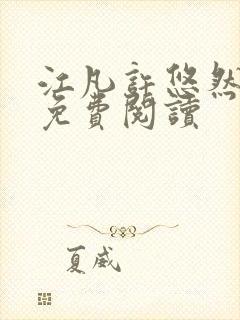 江凡許悠然
免費閱讀
夏威